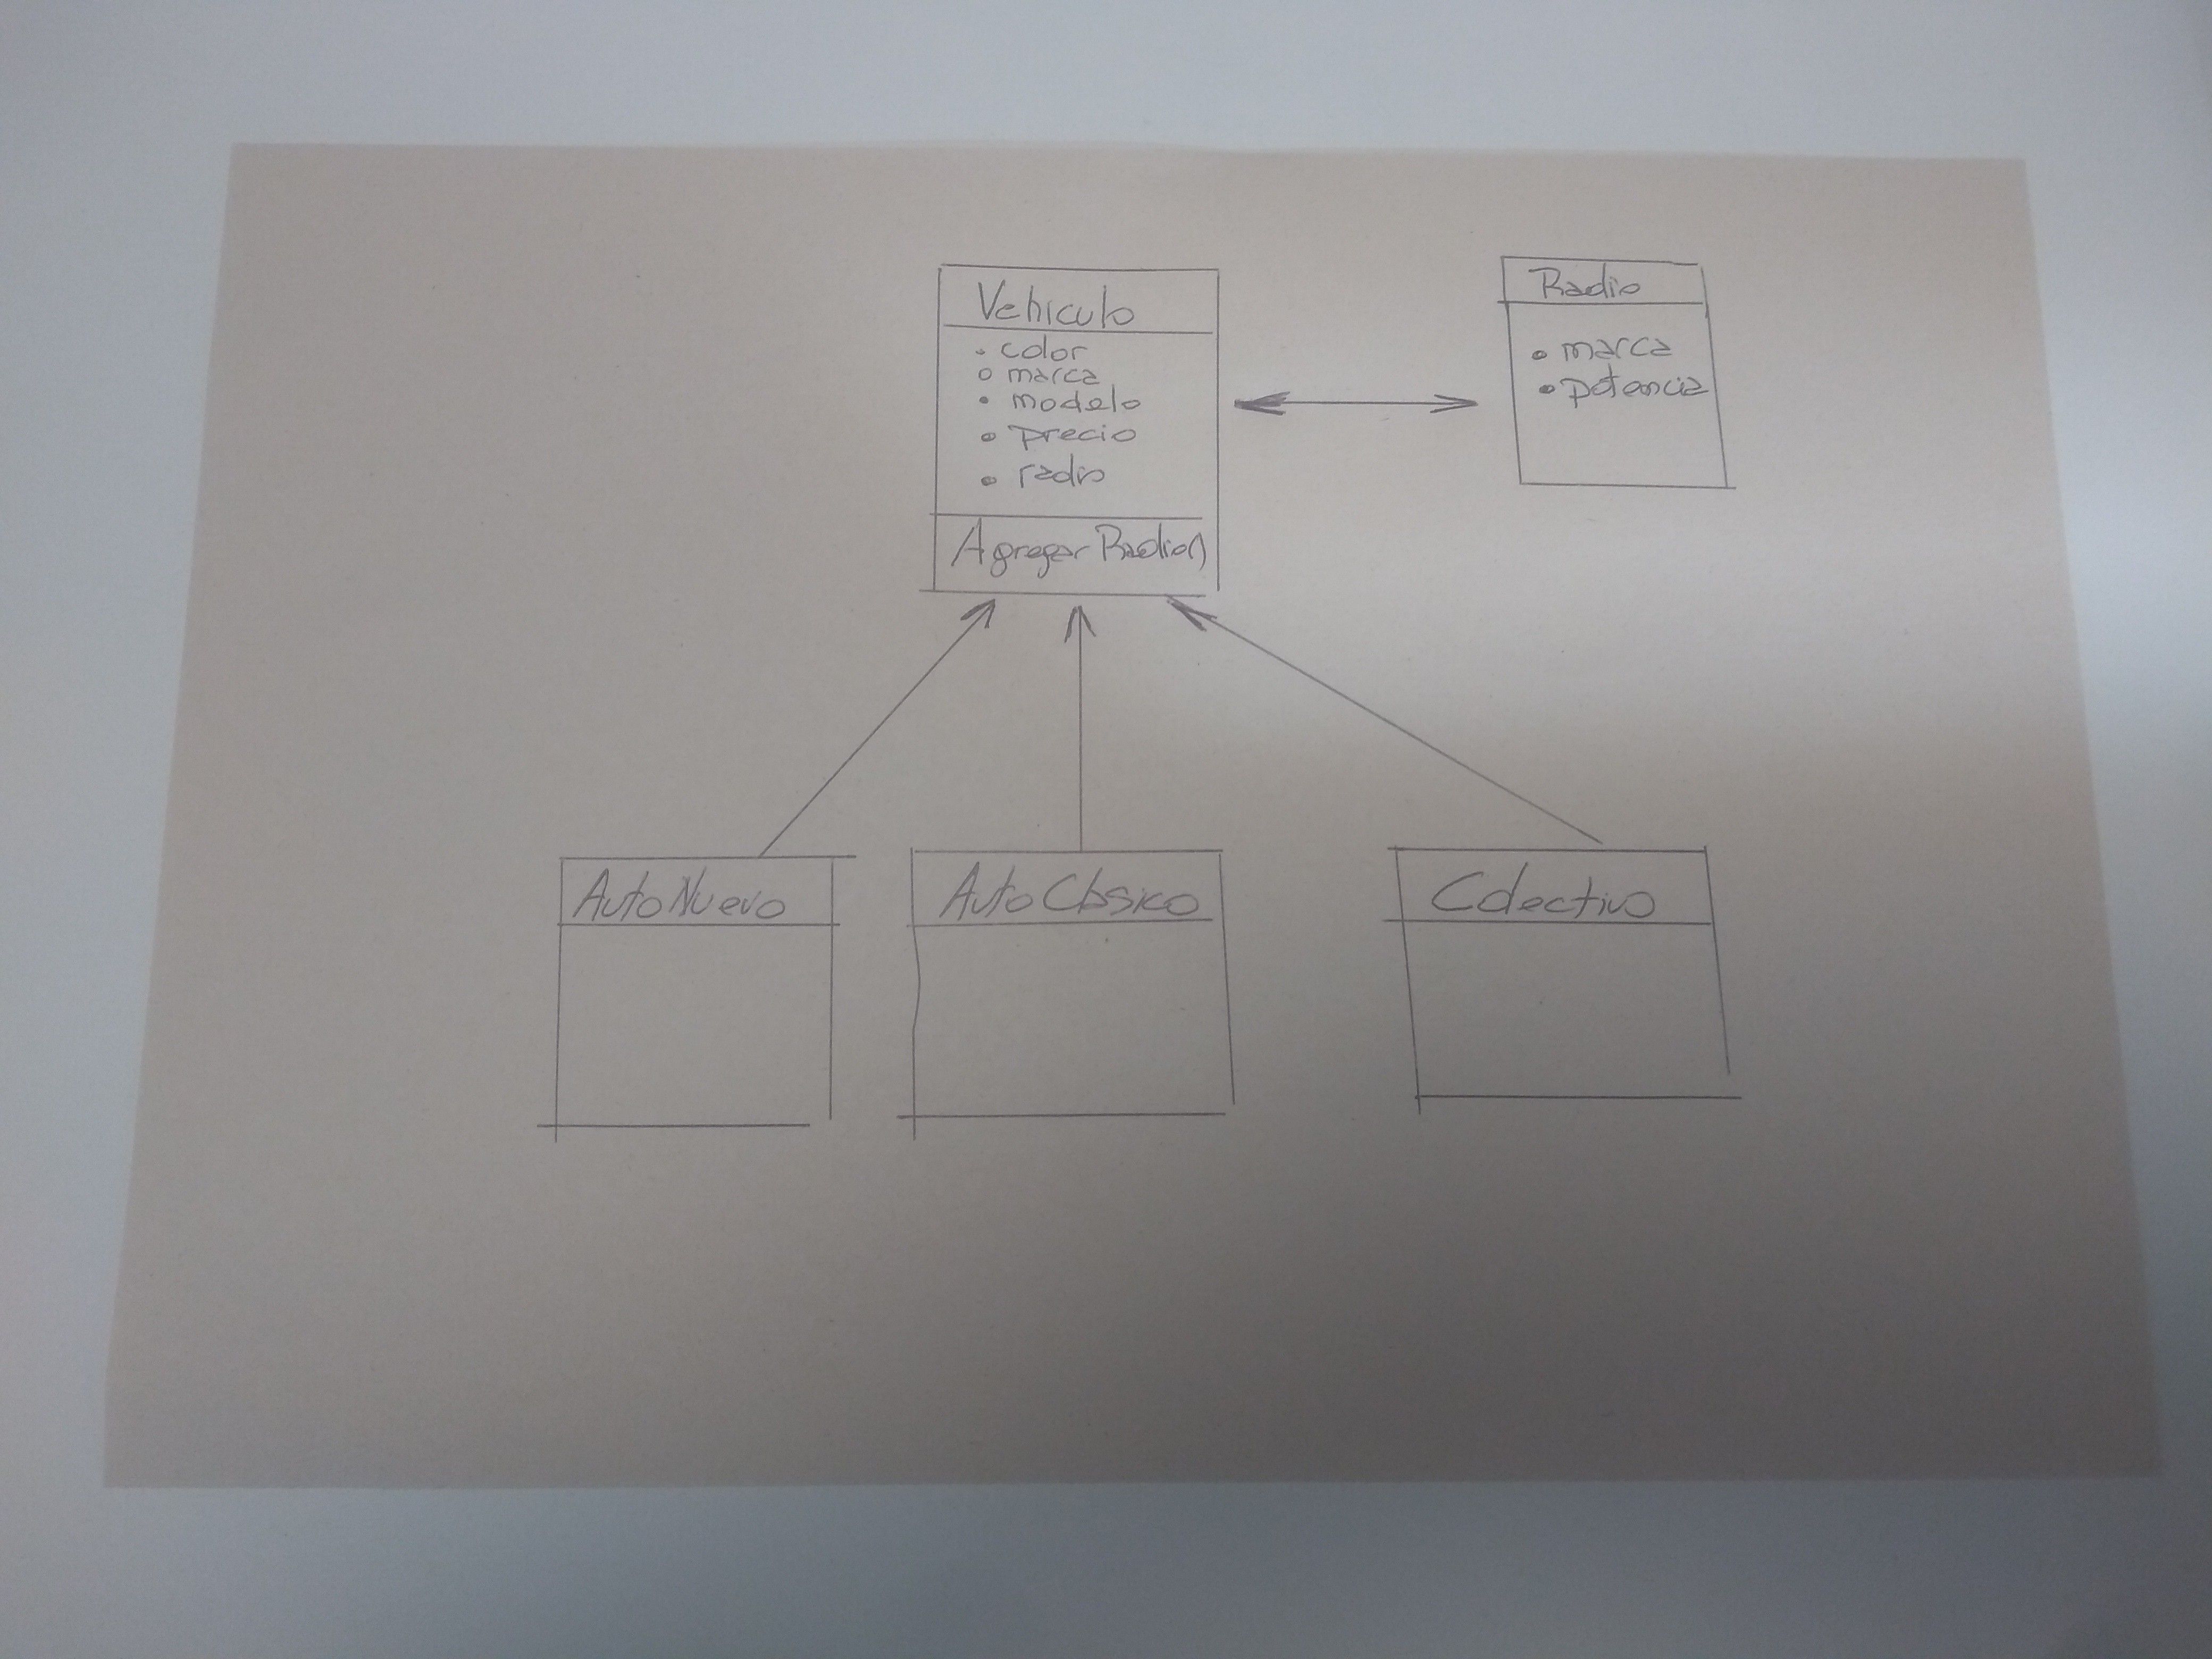 Vehiculo
• color
• marca
• modelo
• precio
• radio
Agregar Radio()
Radio
• marca
• potencia
Auto Nuevo
Auto Clasico
Colectivo